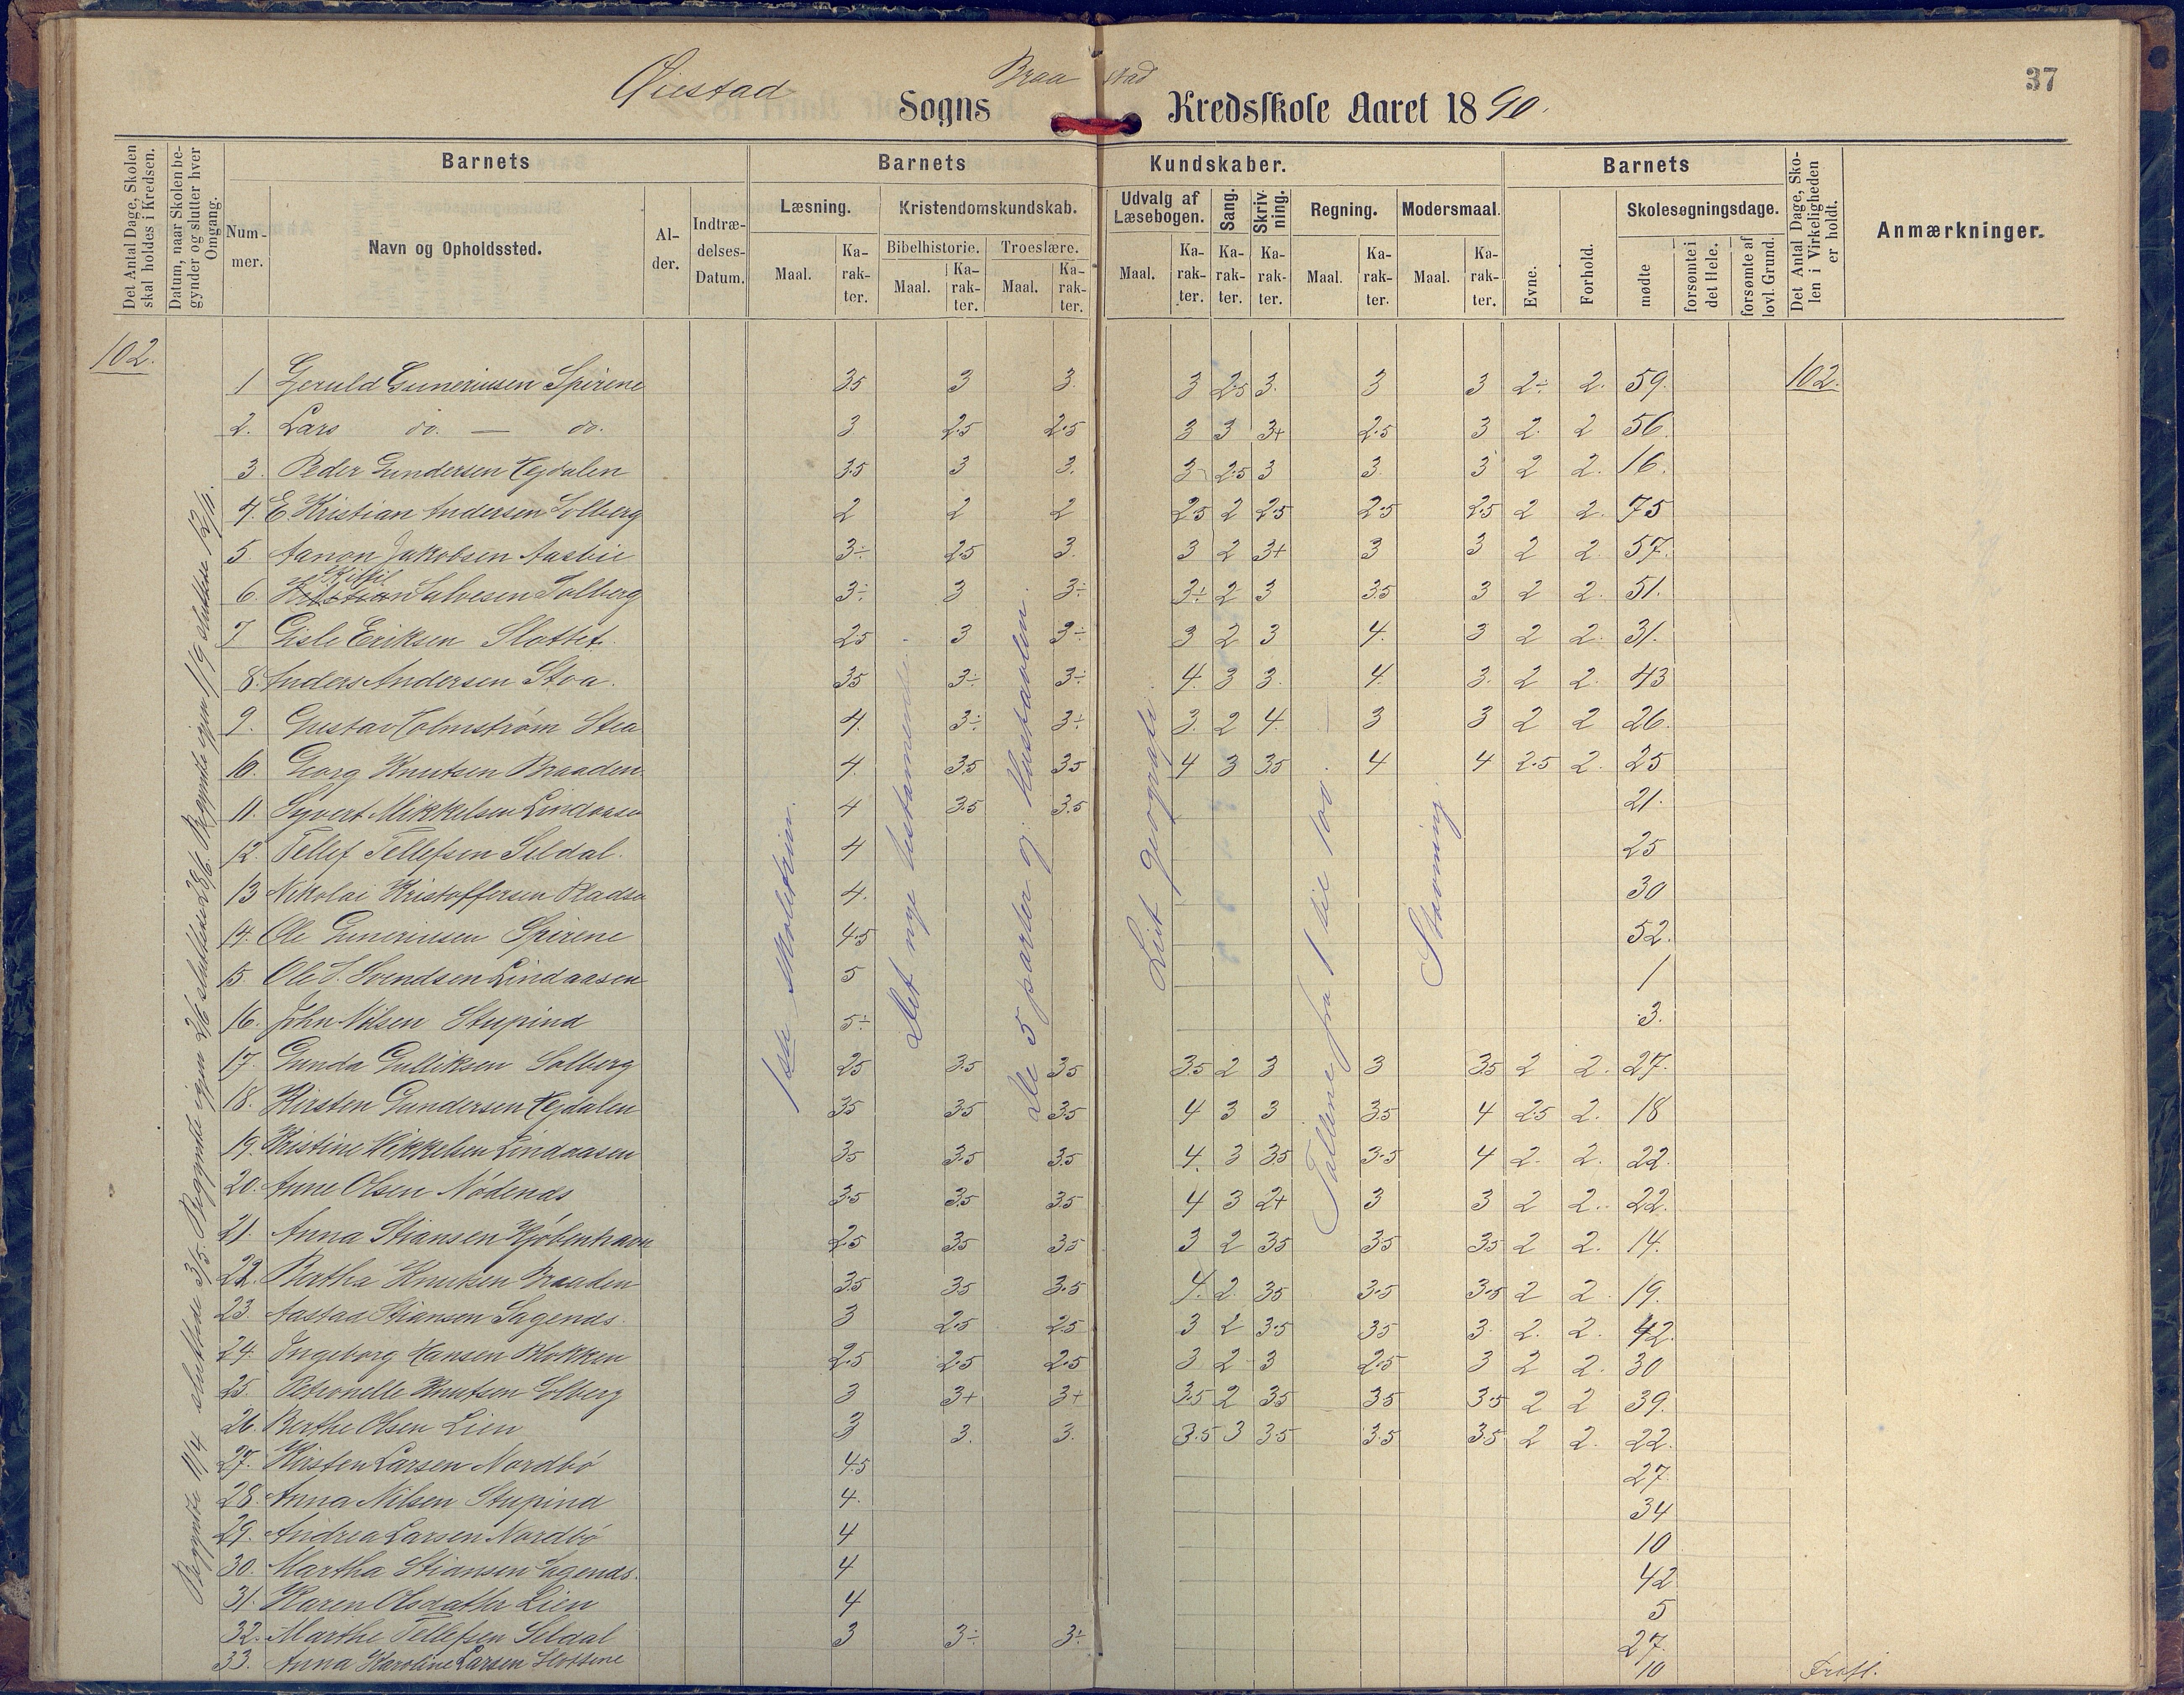 37
Øiestad Sogns Braastad Kredsskole Aaret 1890.
Det Antal Dage, Skolen skal holdes i Kredsen.
Datum, naar Skolen begynder og slutter hver Omgang.
Barnets
Nummer.
Navn og Opholdssted.
Alder.
Indtrædelses-Datum.
Barnets Kundskaber.
Læsning.
Maal.
Karakter.
Kristendomskundskab.
Bibelhistorie.
Maal.
Karakter.
Troeslære.
Maal.
Karakter.
Udvalg af Læsebogen.
Maal.
Karakter.
Sang.
Karakter.
Skrivning.
Karakter.
Regning.
Maal.
Karakter.
Modersmaal.
Maal.
Karakter.
Barnets
Evne.
Forhold.
Skolesøgningsdage.
mødte
forsømte i det Hele.
forsømte af lovl. Grund.
Det Antal Dage, Skolen i Virkeligheden er holdt.
Anmærkninger.
102.
Begyndte 11/4 sluttede 3/5. Begyndte igjen 2/6 sluttede 28/6. Begyndte igjen 1/9 sluttede 12/11.
Det nye testamente
De 5 parter og hustavlen.
Lidt geografi.
Tallene fra 1 til 100.
Stavning.
1 Geruld Guneriusen Spirene 35 3 3. 3 2.5 3. 3 3 2÷ 2. 59. 102.
2. Lars do. — do. 3 2.5 2.5 3 3 3+ 2.5 3 2. 2 56.
3. Peder Gundersen Egdalen 3.5 3 3. 3 2.5 3 3. 3 2 2. 16.
4. E Kristian Andersen Solberg 2 2 2 2.5 2 2.5 2.5 2.5 2 2. 75
5. Aanon Jakobsen Aasbie 3÷ 2.5 3. 3 2 3+ 3 3 2 2. 57.
6. Kittil Salvesen Solberg 3÷ 3 3÷ 3÷ 2 3 3.5 3 2 2. 51.
7 Gisle Eriksen Slottet. 25 3 3÷ 3 2 3 4. 3 2 2. 31.
8. Anders Andersen Stoa. 35 3÷ 3÷ 4. 3 3. 4. 3. 2 2. 43
9. Gustav Holmstrøm Stea 4. 3÷ 3÷ 3. 2 4. 3 3 2 2 26.
10. Georg Knutsen Braaden. 4. 3.5 35 4 3 35 4 4 2.5 2. 25
11. Syvert Mikkelsen Lindaasen 4 3.5 3.5 21.
12. Tellef Tellefsen Seldal. 4 25
13 Nikolai Kristoffersen Pladsen 4. 30
14. Ole Guneriusen Spirene 4.5 52.
15. Ole S. Svendsen Lindaasen 5 1
16. John Nilsen Stupind 5÷ 3.
17. Gunda Gulliksen Solberg 25 3.5 35 3.5 2 3 3 35 2 2. 27.
18. Kirsten Gundersen Egdalen 35 3.5 3.5 4 3 3 35 4 2.5 2. 18
19. Kristine Mikkelsen Lindaasen 35 3.5 3.5 4. 3 35 3.5 4 2. 2. 22.
20. Anne Olsen Nødends 3.5 3.5 3.5 4 3 2+ 3 3 2 2. 22.
21. Anna Stiansen Kjøbenhavn 2.5 3.5 35 3 2 35 35 35 2 2. 14.
22. Bertha Knutsen Braaden 3.5 35 3.5 4. 2. 35 3.5 3.5 2 2 19.
23. Aastad Stiansen Sagends. 3 2.5 2.5 3 2 3.5 35 3. 2. 2. 42.
24. Ingeborg Hansen Blokken 2.5 2.5 2.5 3 2 3 2.5 3 2 2. 30
25. Petronelle Knutsen Solberg 3 3+ 3+ 3.5 2 35 35 3.5 2 2 39.
26. Berthe Olsen Lien 3 3. 3. 3.5 3 3.5 3.5 3.5 2 2. 22.
27. Kirsten Larsen Nordbø 4.5 27.
28. Anna Nilsen Stupind 4. 34
29. Andrea Larsen Nordbø 4 10
30. Martha Stiansen Sagends. 4 42
31. Karen Olsdatter Lien 4 5
32. Marthe Tellefsen Seldal 3 3÷ 3÷ 27.
33. Anna Karoline Larsen Slottene 10